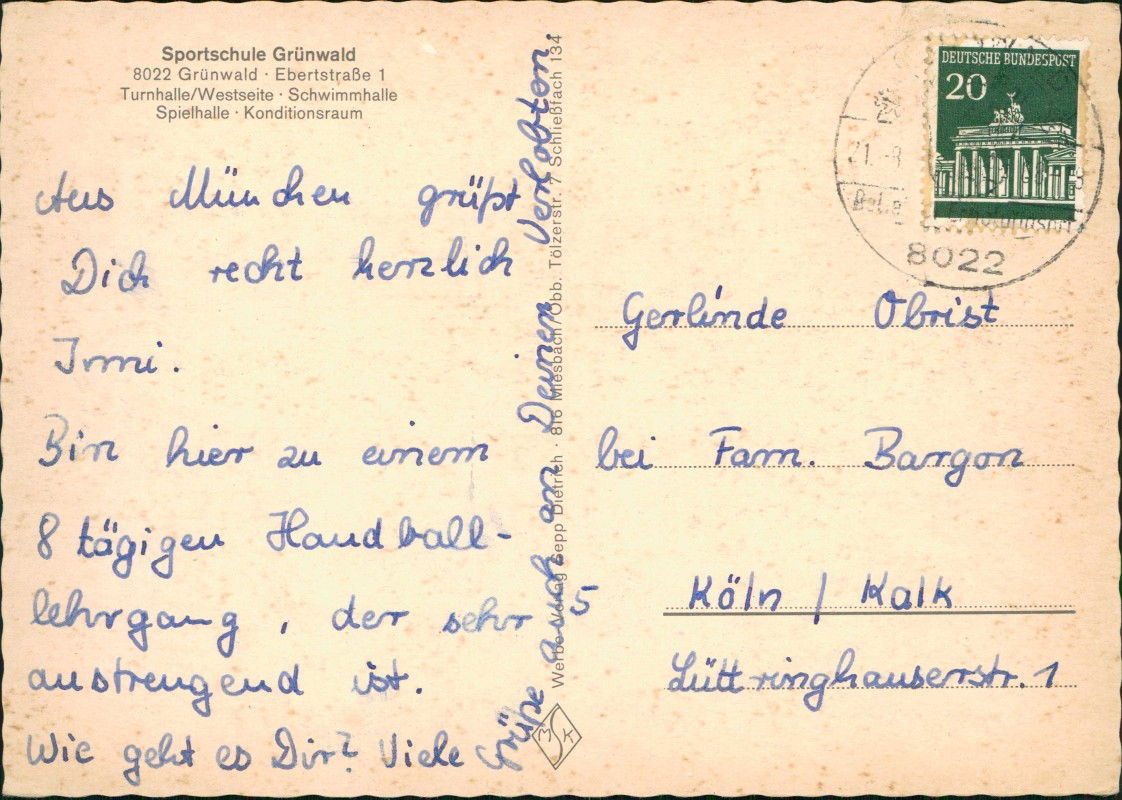 Sportschule Grünwald
8022 Grünwald · Ebertstraße 1
Turnhalle/Westseite · Schwimmhalle
Spielhalle · Konditionsraum
Aus München grüßt
Dich recht herzlich
Irmi.
Bin hier zu einem
8 tägigen Handball-
lehrgang, der sehr
anstrengend ist.
Wie geht es Dir? Viele
Grüße auch an Deinen Verlobten.
Werbe-Verlag Sepp Dietrich · 816 Miesbach/Obb. Tölzerstr. 7 Schließfach 134
MSK
DEUTSCHE BUNDESPOST
20
8022
Gerlinde Obrist
bei Fam. Bargon
5 Köln / Kalk
Lüttringhauserstr. 1